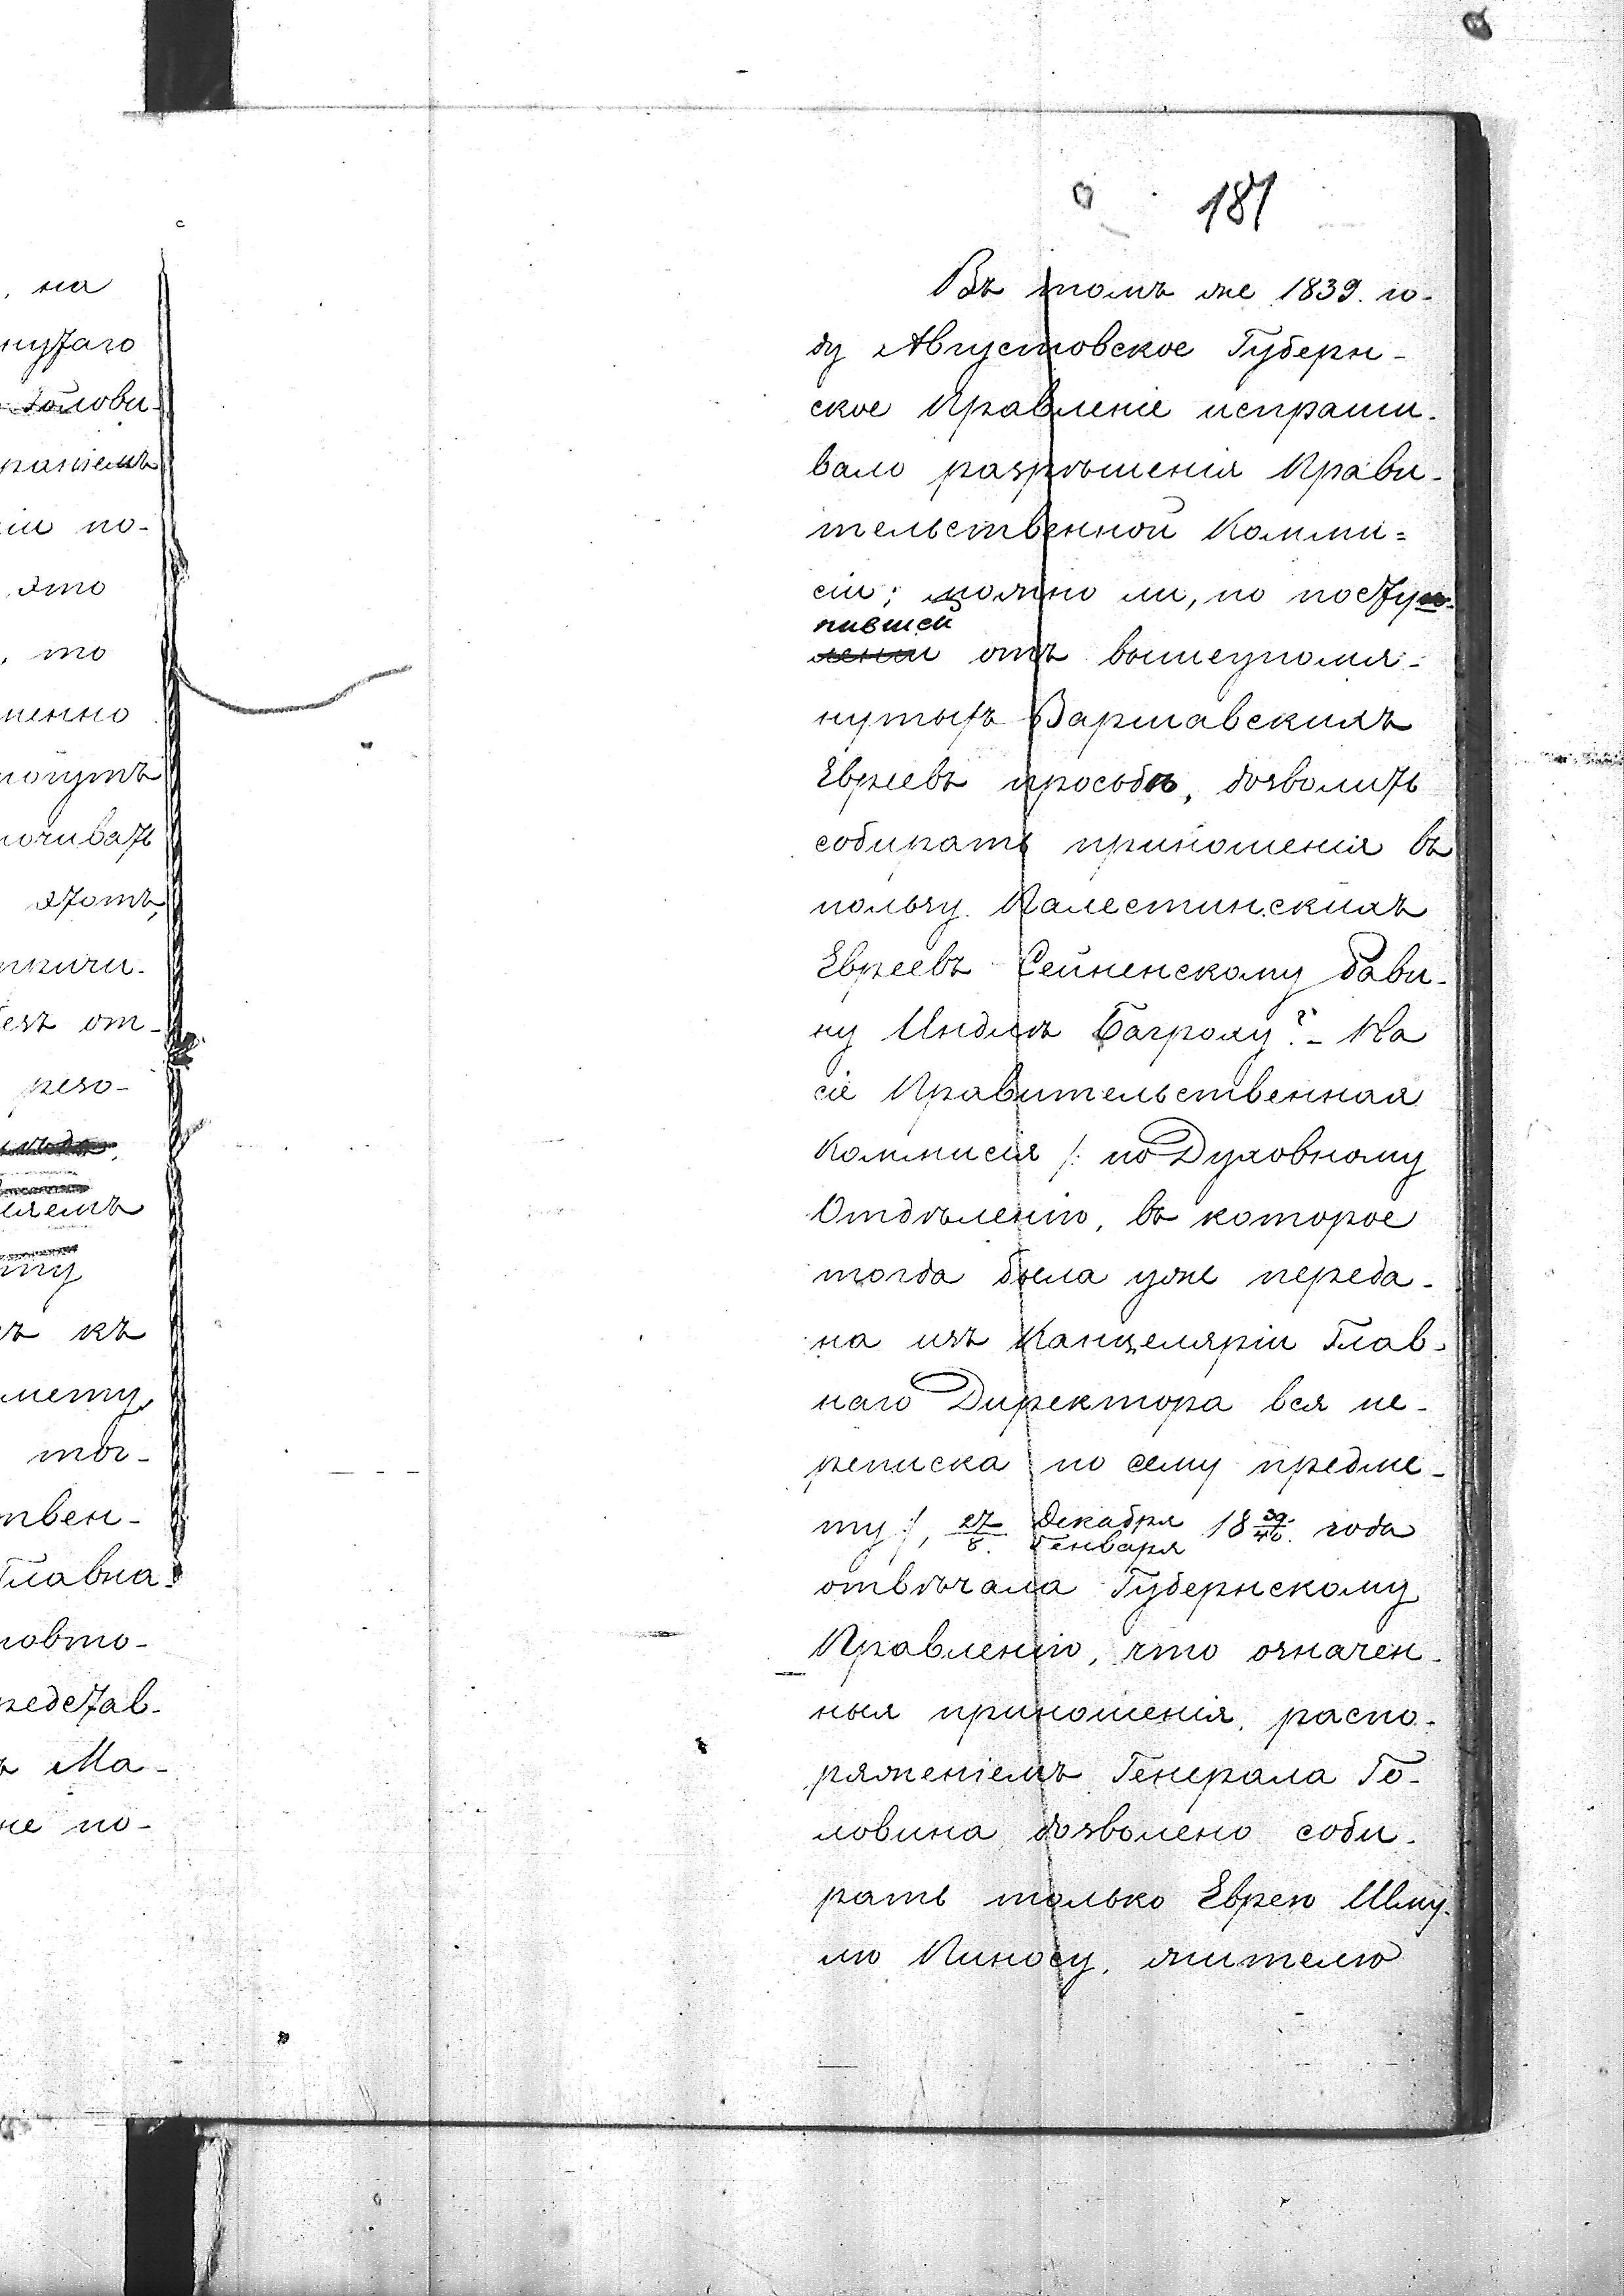 181
Въ томъ же 1839. го-
ду Августовское Губерн-
ское Правленіе испраши-
вало разрѣшенія Прави-
тельственной Комми=
сіи; можно ли, по поступ-
пившей
леніи отъ вышеупомя-
нутыхъ Варшавскихъ
Евреевъ просьбѣ, дозволить
собирать приношенія въ
пользу Палестинскихъ
Евреевъ Сейненскому Раби-
ну Инделѣ Баграху? - На
сіе Правительственная
Коммисія /: по Духовному
Отдѣленію, въ которое
тогда была уже переда-
на изъ Канцеляріи Глав-
наго Директора вся пе-
реписка по сему предме-
ту :/, 27/8. Декабря/Генваря 18 39/40. года
отвѣчала Губернскому
Правленію, что означен-
ныя приношенія, распо-
ряженіемъ Генерала Го-
ловина дозволено соби-
рать только Еврею Шму-
лю Пиносу, жителю
на
нутаго
Голови-
по-
это
то
менно
могутъ
этотъ,
причи-
от-
резо-
къ
тог-
твен-
Главна-
повто-
редстав-
Ма-
не по-